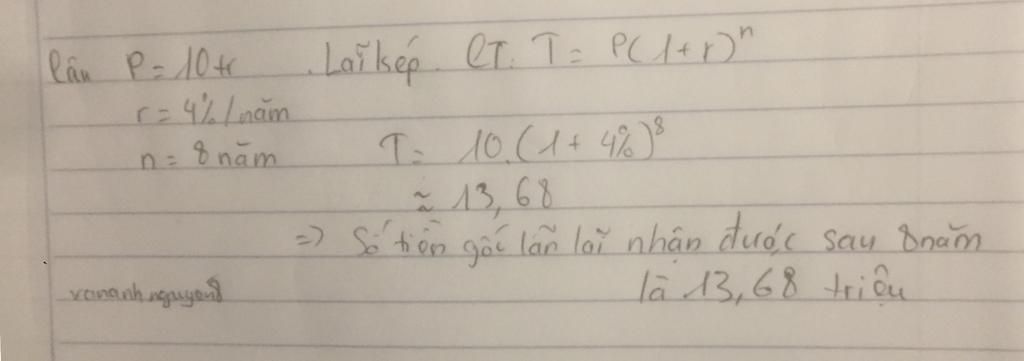 Lân P = 10tr . Lãi kép. CT: T = P(1+r)^n
r = 4%/năm
n = 8 năm T = 10.(1+4%)^8
≈ 13,68
=> Số tiền gốc lẫn lãi nhận được sau 8 năm
là 13,68 triệu
vananhnguyen8